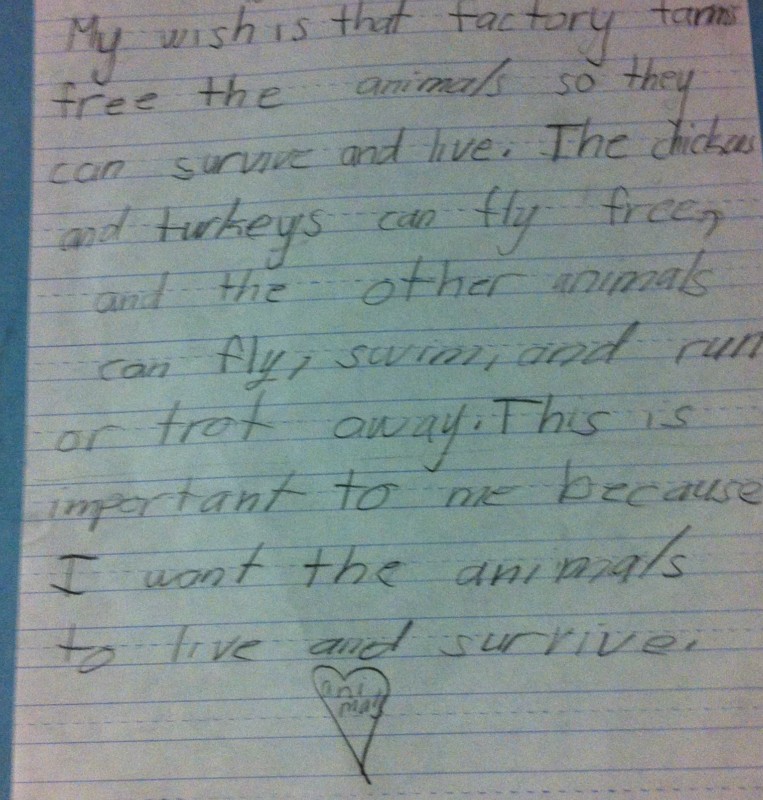 My wish is that factory farms
free the animals so they
can survive and live. The chickens
and turkeys can fly free,
and the other animals
can fly, swim, and run
or trot away. This is
important to me because
I want the animals
to live and survive.
ani
mals